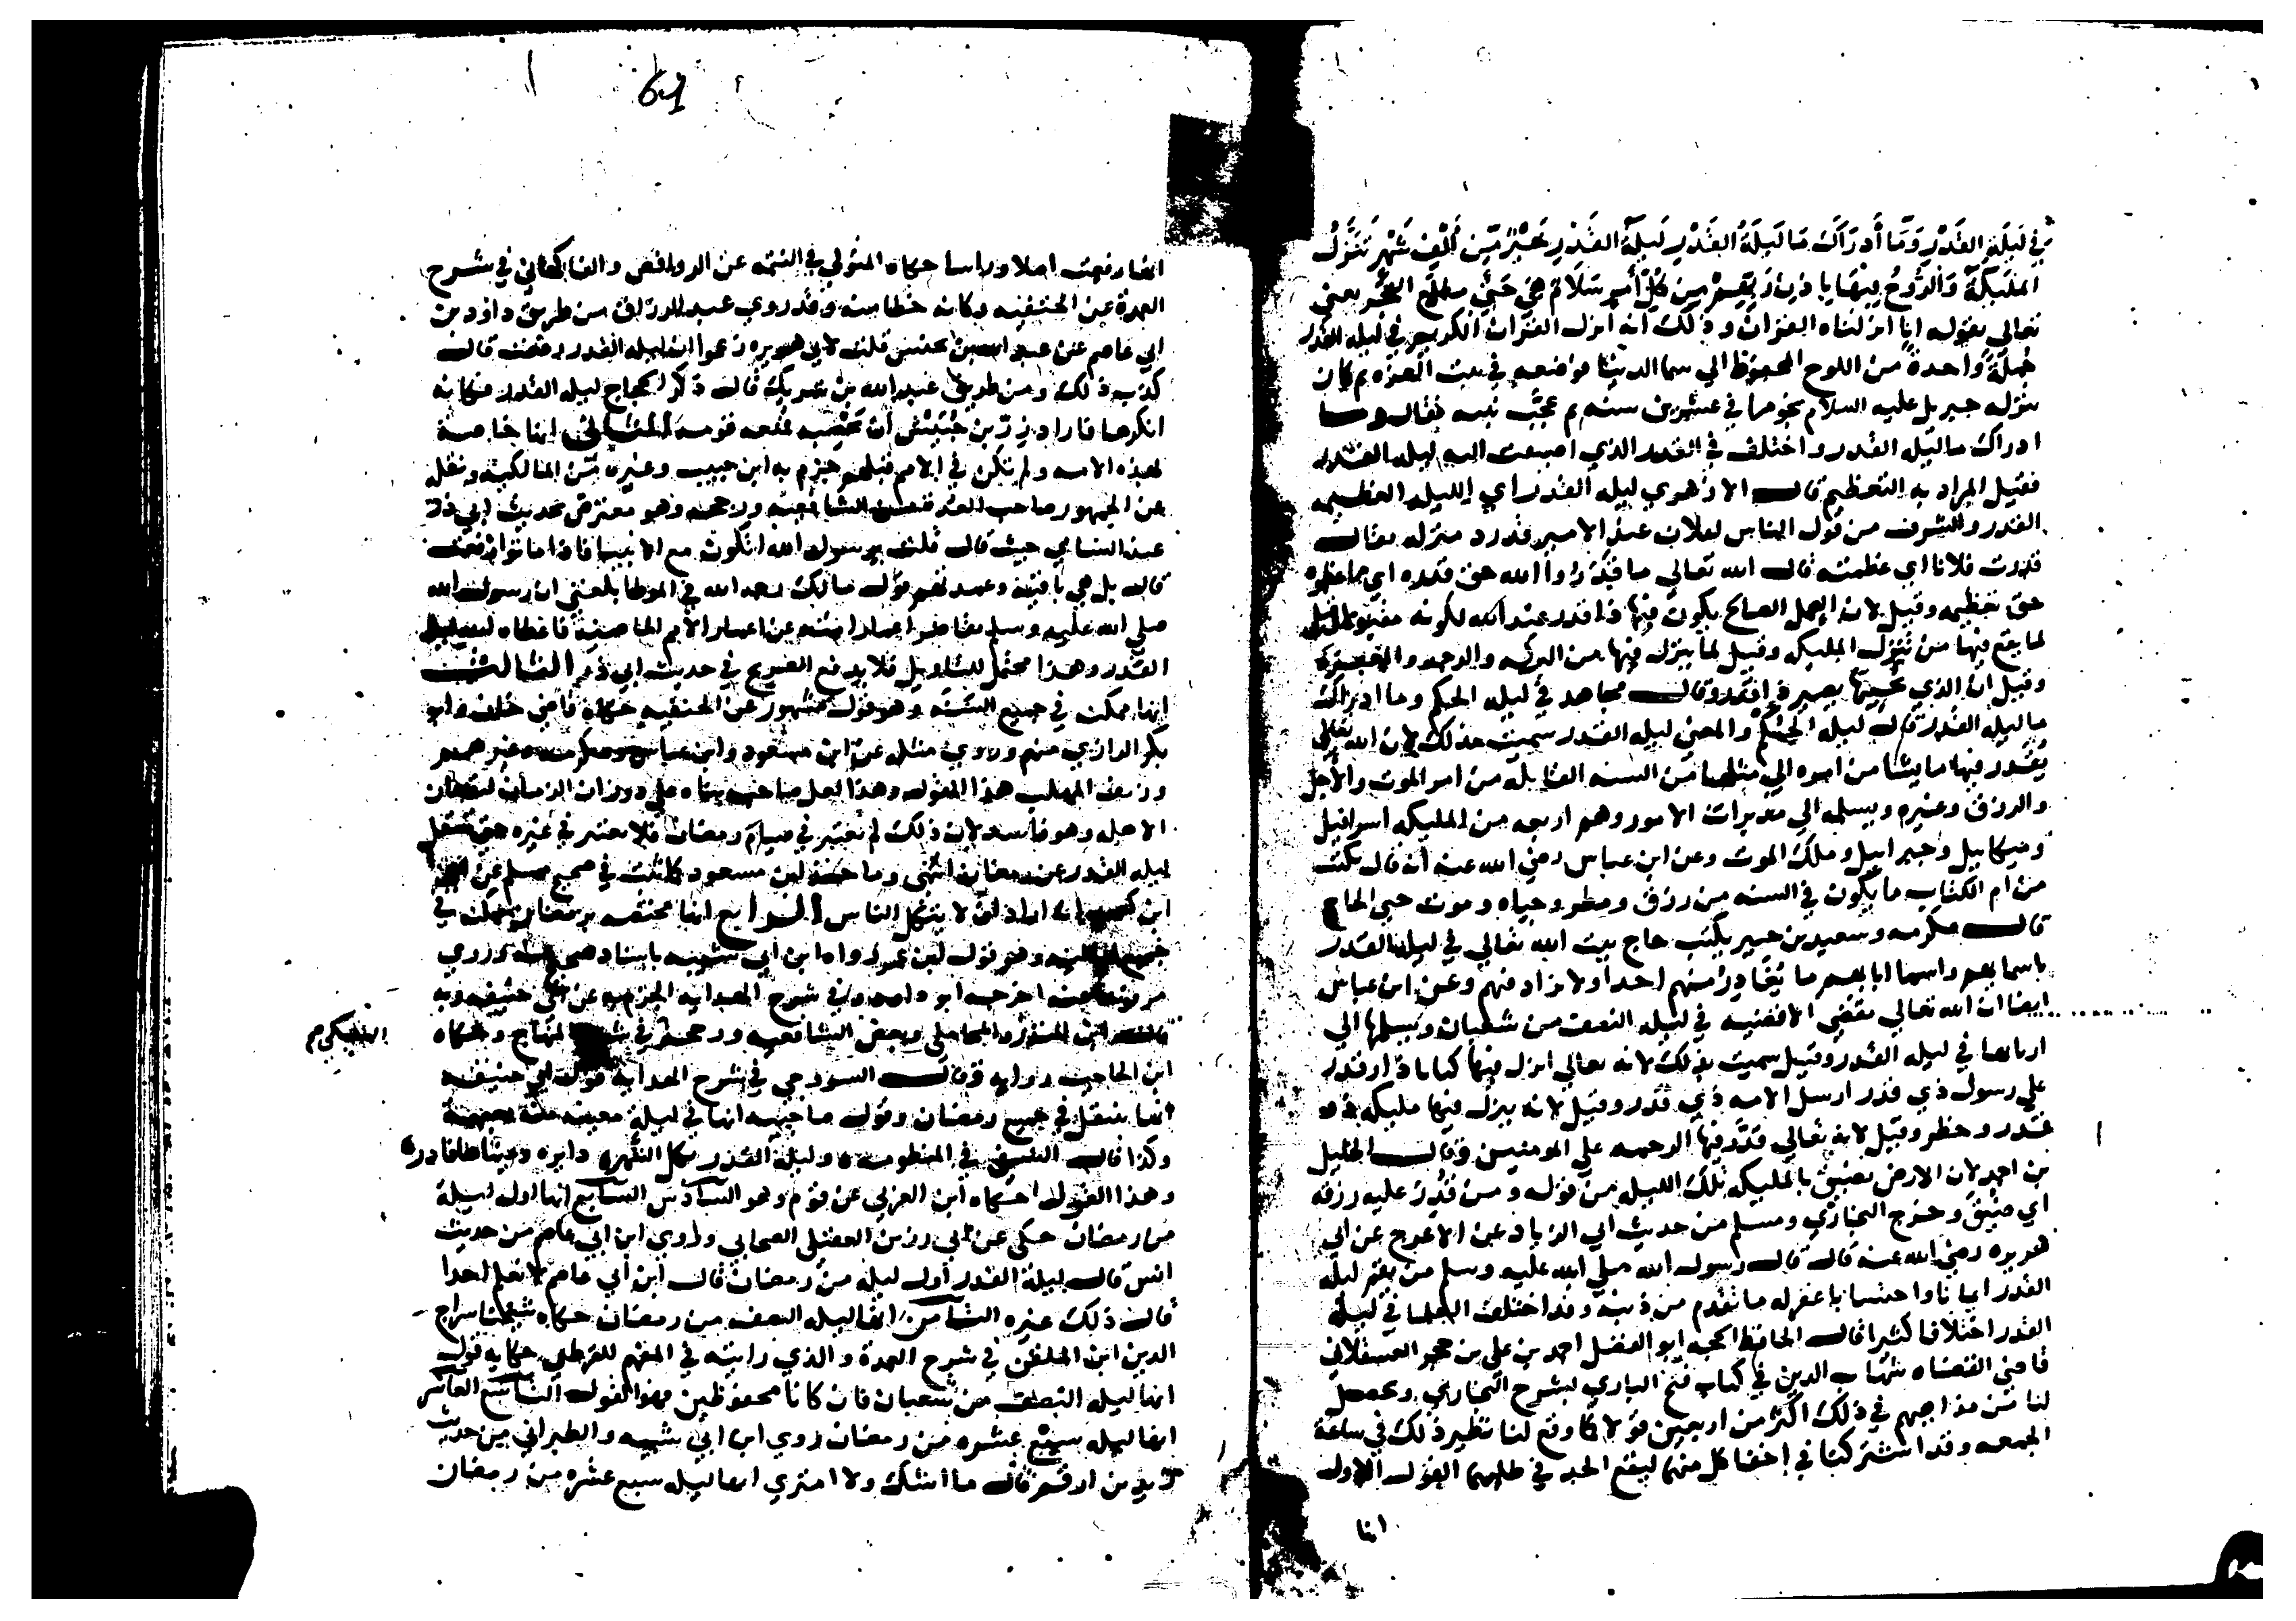 في لَيلَةِ القَدْرِ وَمَا أَدرَاكَ مَا لَيلَةُ القَدْرِ لَيلَةُ القَدْرِ خَيْرٌ مِّن أَلْفِ شَهْرٍ تَنَزَّلُ
المَلَيكَةُ وَالرُّوحُ فِيهَا بِاذنِ رَبِّهِمْ مِن كُلِّ أَمرٍ سَلَامٌ هِيَ حَتَّى مطلع الفجر يعني
تعالى بقوله انا انزلناه القران وذلك انه انزل القران الكريم في ليله القدر
جُملَةً وَاحدةً من اللوح المحفوظ الي سما الدنيا فوضعه في بيت العزه ثم كان
ينزله جبريل عليه السلام نجوما في عشرين سنه ثم عجّب نبيه فقال وما
ادراك ما ليله القدر واختلف في القدر الذي اضيفت اليه ليله القدر
فقيل المراد به التعظيم قال الازهري ليله القدر اي الليله العظيمه
القدر والشرف من قول الناس لفلان عند الامير قدر اد منزله يقال
قدرت فلانا اي عظمته قال الله تعالي ما قدروا الله حق قدره اي ما عظموه
حق تعظيمه وقيل لان العمل الصالح يكون فيها ذا قدر عند الله لكونه مقبولا وقيل
لما يقع فيها من تنزل المليكه وقيل لما ينزل فيها من البركه والرحمه والمغفره
وقيل ان الذي يحييها يصير ذا قدر وقال مجاهد في ليله الحكم وما ادراك
ما ليله القدر قال ليله الحكم والمعني ليله القدر سميت بذلك لان الله تعالى
يُقدر فيها ما يشا من امره الي مثلها من السنه القابله من امر الموت والأجل
والرزق وغيره ويسلمه الي مدبرات الامور وهم اربعه من المليكه اسرافيل
وميكاييل وجبراييل وملك الموت وعن ابن عباس رضي الله عنه انه قال يكتب
من ام الكتاب ما يكون في السنه من رزق ومطر وحياه وموت حتي الحاج
قال عكرمه وسعيد بن جبير يكتب حاج بيت الله تعالي في ليله القدر
باسمايهم واسما ابايهم ما يُغَادِرُ منهم احدا ولا يزاد فيهم وعن ابن عباس
ايضا ان الله تعالي يقضي الاقضيه في ليله النصف من شعبان ويسلمها الي
اربابها في ليله القدر وقيل سميت بذلك لانه تعالي انزل فيها كتابا ذا قدر
علي رسول ذي قدر ارسل الامه ذي قدر وقيل لانه ينزل فيها مليكه ذو
قدر وخطر وقيل لانه تعالي قدّر فيها الرحمه علي المومنين وقال الخليل
بن احمد لان الارض تضيق بالمليكه تلك الليله من قوله ومن قُدِرَ عليه رزقه
اي ضيق وخرج البخاري ومسلم من حديث ابي الزناد عن الاعرج عن ابي
هريره رضي الله عنه قال قال رسول الله صلي الله عليه وسلم من يقم ليله
القدر ايمانا واحتسابا غفر له ما تقدم من ذنبه وقد اختلف العلما في ليله
القدر اختلافا كثيرا قال الحافظ الحجه ابو الفضل احمد بن علي بن حجر العسقلاني
قاضي القضاه شهاب الدين في كتاب فتح الباري لشرح البخاري وتحصل
لنا من مذاهبهم في ذلك اكثر من اربعين قولا كما وقع لنا نظير ذلك في ساعه
الجمعه وقد اشتركتا في اخفا كل منهما ليقع الجد في طلبهما القول الاول
انها
61
انها رفعت اصلا وراسا حكاه المتولي في التتمه عن الروافض والفاكهاني في شرح
العمدة عن الحنفيه وكانه خطا منه وقد روي عبد الرزاق من طريق داود بن
ابي عاصم عن عبد الله بن يحنس قلت لابي هريره زعموا ان ليله القدر رفعت قال
كذب ذلك ومن طريق عبد الله بن شريك قال ذكر الحجاج ليله القدر فكانه
انكرها فاراد زر بن حُبَيْش ان يحصبه فمنعه قومه الثاني انها خاصة
بهذه الامه ولم تكن في الامم قبلهم جزم به ابن حبيب وغيره من المالكيه ونقل
عن الجمهور صاحب العده من الشافعيه ورجحه وهو معترض بحديث ابي ذر
عند النسائي حيث قال قلت يرسول الله اتكون مع الانبيا فاذا ماتوا رفعت
قال بل هي باقيه وعمدتهم قول مالك رحمه الله في الموطا بلغني ان رسول الله
صلي الله عليه وسلم تقاصر اعمار امته عن اعمار الامم الماضية فاعطاه الله ليله
القدر وهذا محتمل للتاويل فلا يدفع الصريح في حديث ابي ذر الثالث
انها ممكنه في جميع السنه وهو قول مشهور عن الحنفيه حكاه قاضي خان وابو
بكر الرازي منهم وروي مثله عن ابن مسعود وابن عباس وعكرمه وغيرهم
وزيف المهلب هذا القول وهذا لعل صاحبه بناه علي دوران الزمان لنقصان
الاهله وهو فاسد لان ذلك لم يعتبر في صيام رمضان فلا يعتبر في غيره حتي تنتقل
ليله القدر عن رمضان انتهى وما خذ ابن مسعود كما ثبت في صحيح مسلم عن ابي
ابن كعب انه اراد ان لا يتكل الناس الرابع انها مختصه برمضان ممكنه في
جميع لياليه وهو قول ابن عمر رواه ابن ابي شيبه باسناد صحيح وروي
مرفوعا عنه اخرجه ابو داود وفي شرح الهدايه الجزم به عن ابي حنيفه وبه
قال ابن المنذر والمحاملي وبعض الشافعيه ورجحه في شرح المنهاج وحكاه
السبكي
ابن الحاجب روايه وقال السروجي في شرح الهدايه قول ابي حنيفه
انها تنتقل في جميع رمضان وقول صاحبيه انها في ليلة معينه منه مبهمة
وكذا قال النسفي في المنظومه وليله القدر بكل الشهر دايره وعيناها فادر
وهذا القول حكاه ابن العربي عن قوم وهو السادس السابع انها اول ليلة
من رمضان حكي عن ابي رزين العقيلي الصحابي وروي ابن ابي عاصم من حديث
انس قال ليلة القدر اول ليله من رمضان قال ابن أبي عاصم لا نعلم احدا
قال ذلك غيره الثامن انها ليله النصف من رمضان حكاه شيخنا سراج
الدين ابن الملقن في شرح العمدة والذي رايته في المفهم للقرطبي حكايه قول
انها ليله النصف من شعبان فان كانا محفوظين فهو القول التاسع العاشر
انها ليله سبع عشره من رمضان روي ابن ابي شيبه والطبراني من حديث
زيد بن ارقم قال ما اشك ولا امتري انها ليله سبع عشره من رمضان